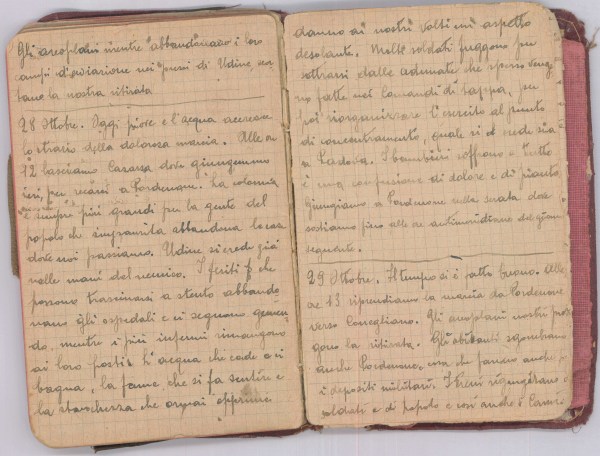 Gli aeoplani mentre abbandonano i loro
campi d'aviazione nei pressi di Udine
la nostra ritirata
28 Ottobre. Oggi piove e l'acqua accresce
lo strazio della dolorosa marcia. Alle ore
12 lasciamo Casarsa dove giungemmo
ieri, per recarsi a Pordenone. La colonna
è sempre più grandi per la gente del
popolo che impaurita abbandona la casa
dove noi passiamo. Udine si crede già
nelle mani del nemico. I feriti che
possono trascinarsi a stento abbando
nano gli ospedali e ci seguono gemen
do, mentre i più infermi rimangono
ai loro posti. L'acqua che cade e ci
bagna, la fame che si fa sentire e
la stanchezza che ormai opprime
danno ai nostri volti un aspetto
desolante. Molti soldati fuggono per
sottrarsi dalle adunate che spesso veng
no fatte nei Comandi di tappa, per
poi riorganizzare l'esercito al punto
di concentramento, quale si crede sia
a Padova. I bambini soffrono e tutto
è una confusione di dolore e di pianto.
Giungiamo a Pordenone nella serata dove
sostiamo fino alle ore antimeridiane del giorno
seguente.
29 Ottobre. Il tempo si è fatto buono. Alle
ore 13 riprendiamo la marcia da Pordenone
verso Conegliano. Gli aeroplani nostri
gono la ritirata. Gli abitanti sgombrano
anche Pordenone, cosa che fanno anche
i depositi militari. I treni rigurgitano
soldati e di popolo e così anche i